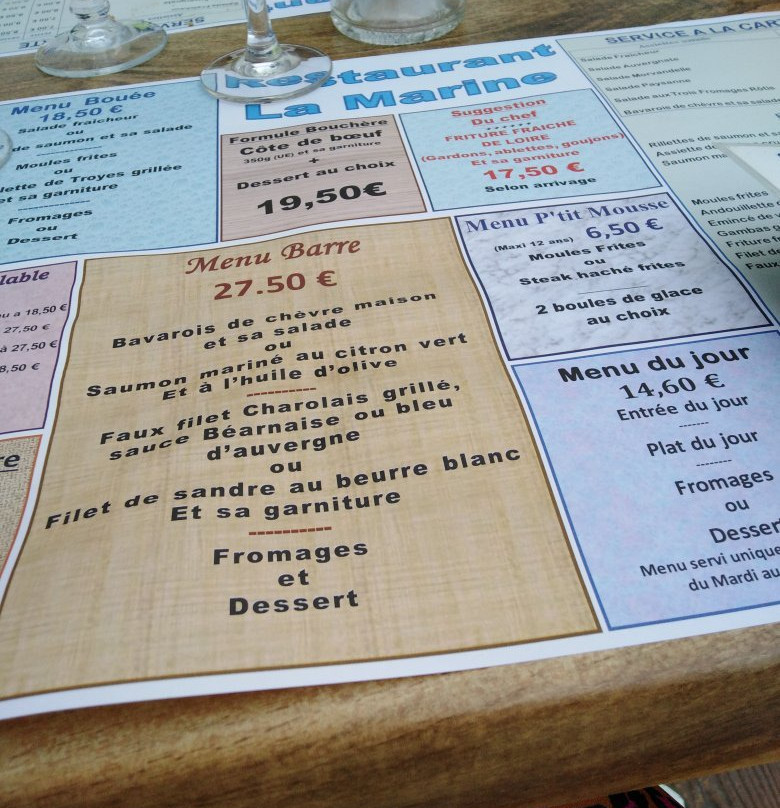 Restaurant
La Marine
Menu Bouée
18,50 €
Salade fraicheur
ou
de saumon et sa salade
----------
Moules frites
ou
de Troyes grillée
et sa garniture
----------
Fromages
ou
Dessert
Formule Bouchère
Côte de bœuf
350g (UE) et sa garniture
+
Dessert au choix
19,50€
Suggestion
Du chef
......
FRITURE FRAICHE
DE LOIRE
(Gardons, ablettes, goujons)
Et sa garniture
17,50 €
Selon arrivage
Menu P'tit Mousse
(Maxi 12 ans) 6,50 €
Moules Frites
ou
Steak haché frites
----------
2 boules de glace
au choix
Menu Barre
27.50 €
Bavarois de chèvre maison
et sa salade
ou
Saumon mariné au citron vert
Et à l'huile d'olive
----------
Faux filet Charolais grillé,
sauce Béarnaise ou bleu
d'auvergne
ou
Filet de sandre au beurre blanc
Et sa garniture
----------
Fromages
et
Dessert
Menu du jour
14,60 €
Entrée du jour
-------
Plat du jour
--------
Fromages
ou
Dessert
Menu servi unique
du Mardi au
a 18,50 €
27,50 €
à 27,50 €
8,50 €
SERVICE A LA CAR
Salade Fraicheur
Salade Auvergnate
Salade Morvandelle
Salade Paysanne
Salade aux Trois Fromages Rôtis
Bavarois de chèvre et sa salad
Rillettes de saumon et s
Assiette de
Saumon ma
Moules frites
Andouillette
Emincé de
Gambas
Friture
Filet d
Faux